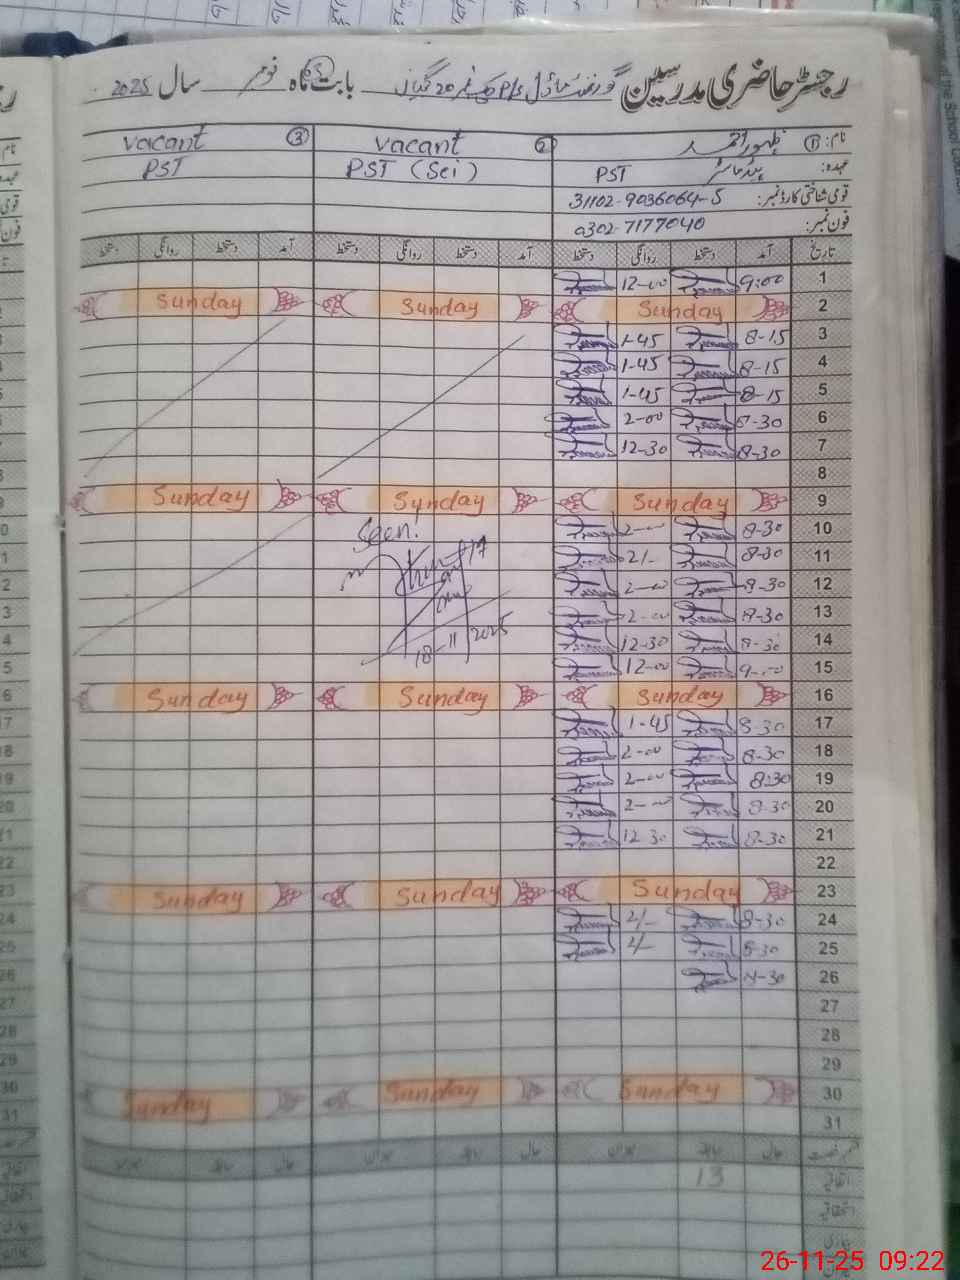 رجسٹر حاضری مدرسین گورنمنٹ ماڈل P/S چک نمبر 20 گیاں بابت ماہ نومبر سال 2025
نام: ① ظہور احمد vacant ② vacant ③
عہدہ: ہیڈ ماسٹر PST PST (Sci) PST
قومی شناختی کارڈ نمبر: 31102-9036064-5
فون نمبر: 0302-7177040
تاریخ آمد دستخط روانگی دستخط آمد دستخط روانگی دستخط آمد دستخط روانگی دستخط
1 9:00 12-00
2 Sunday Sunday Sunday
3 8-15 1-45
4 8-15 1-45
5 8-15 1-45
6 8-30 2-00
7 8-30 12-30
8
9 Sunday Sunday Sunday
10 8-30 2-00
Seen!
11 8-30 2/-
12 8-30 2-00
13 8-30 2-00
14 8-30 12-30
18-11-2025
15 9-00 12-00
16 Sunday Sunday Sunday
17 8-30 1-45
18 8-30 2-00
19 8:30 2-00
20 8-30 2-00
21 8-30 12 30
22
23 Sunday Sunday Sunday
24 8-30 2/-
25 8-30 2/-
26 8-30
27
28
29
30 Sunday Sunday Sunday
31
13
26-11-25 09:22